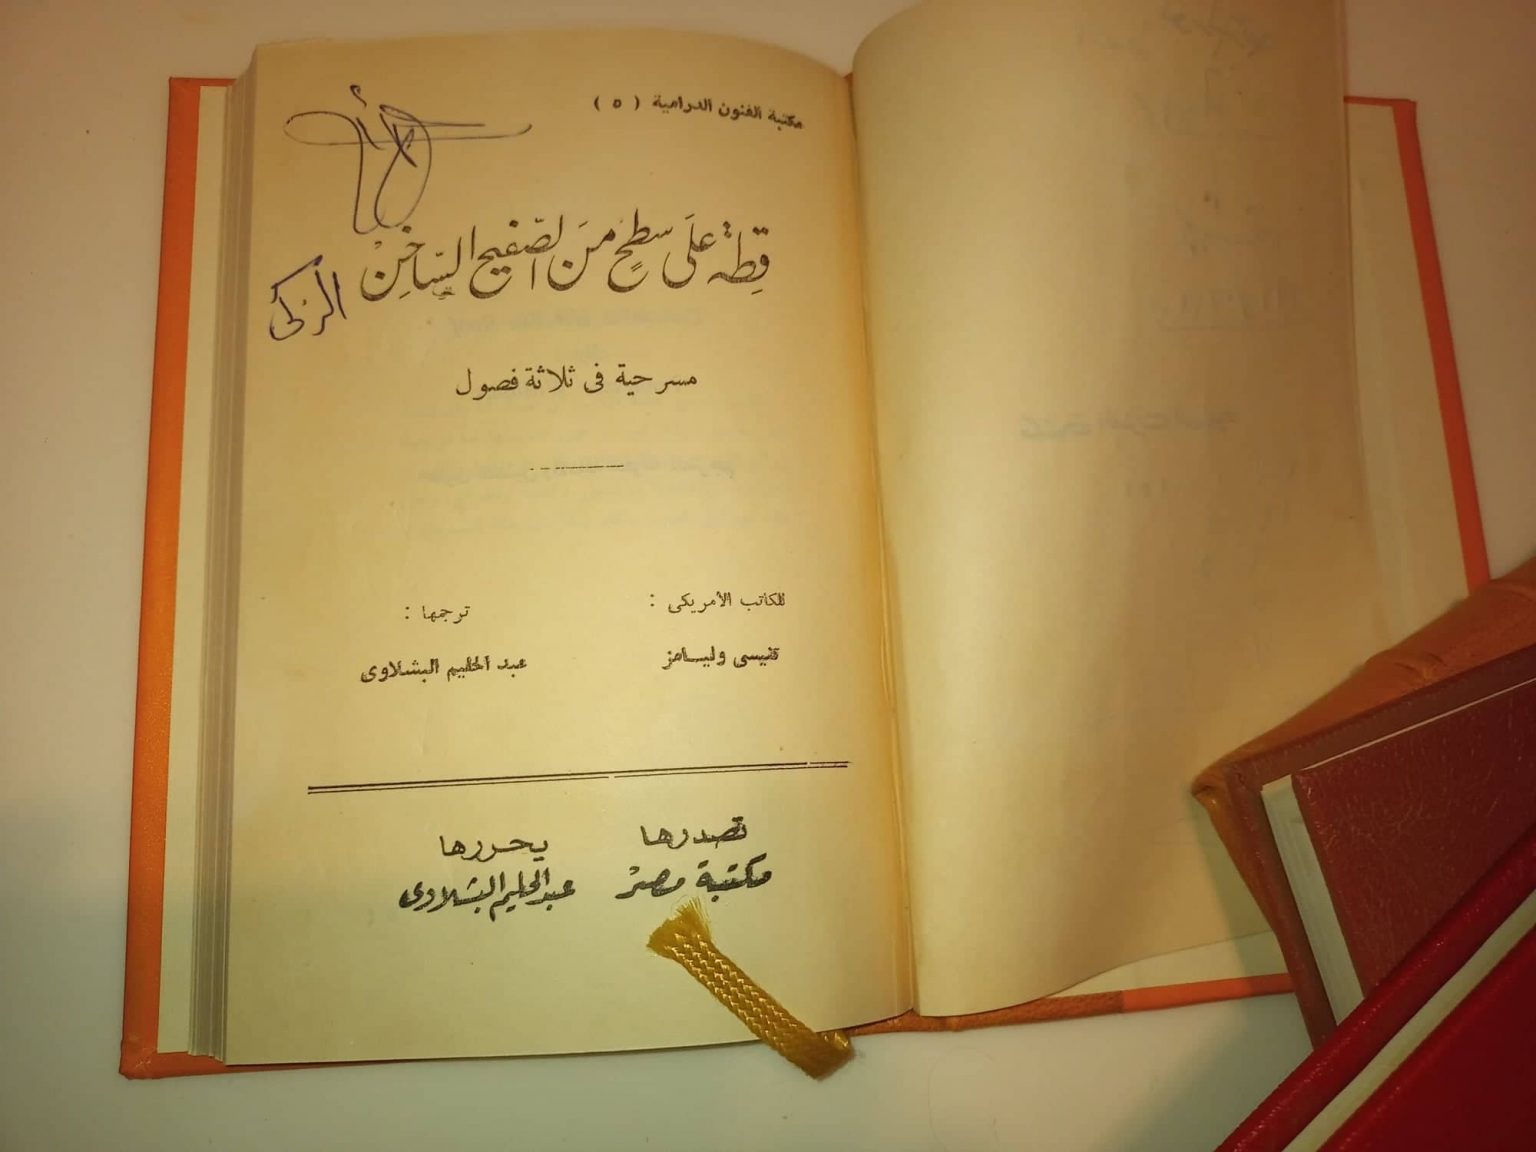 مكتبة الفنون الدرامية ( ٥ )
قِطة عَلى سَطحٍ منَ الصّفيح السّاخِنْ
مسرحية فى ثلاثة فصول
للكاتب الأمريكى :
تنيسى وليامز
ترجمها :
عبد الحليم البشلاوى
تصدرها
مكتبة مصر
يحررها
عبد الحليم البشلاوى